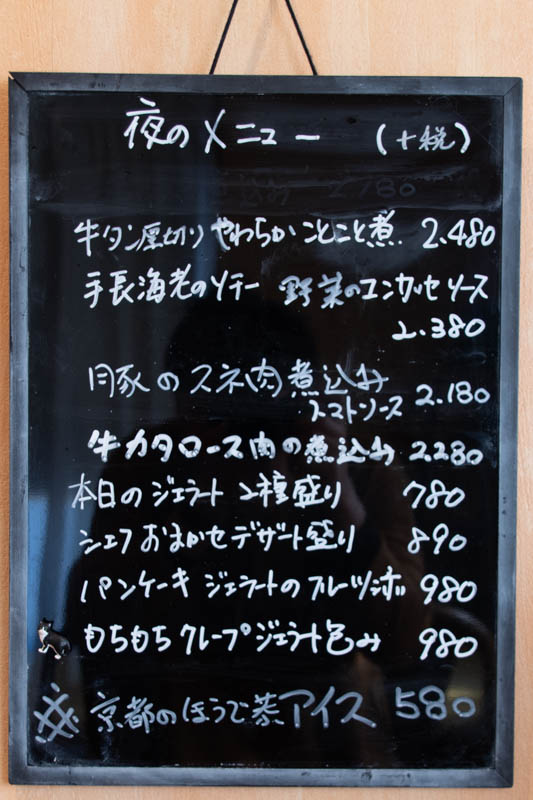 夜のメニュー (+税)
牛タン厚切り やわらか ことこと煮. 2.480
手長海老のソテー 野菜のコンカッセソース
2.380
豚のスネ肉煮込み
トマトソース 2.180
牛カタロース肉の煮込み 2280
本日のジェラート 2種盛り 780
シェフおまかせデザート盛り 890
パンケーキ ジェラートのフルーツ 980
もちもちクレープジェラート包み 980
京都のほうじ茶アイス 580